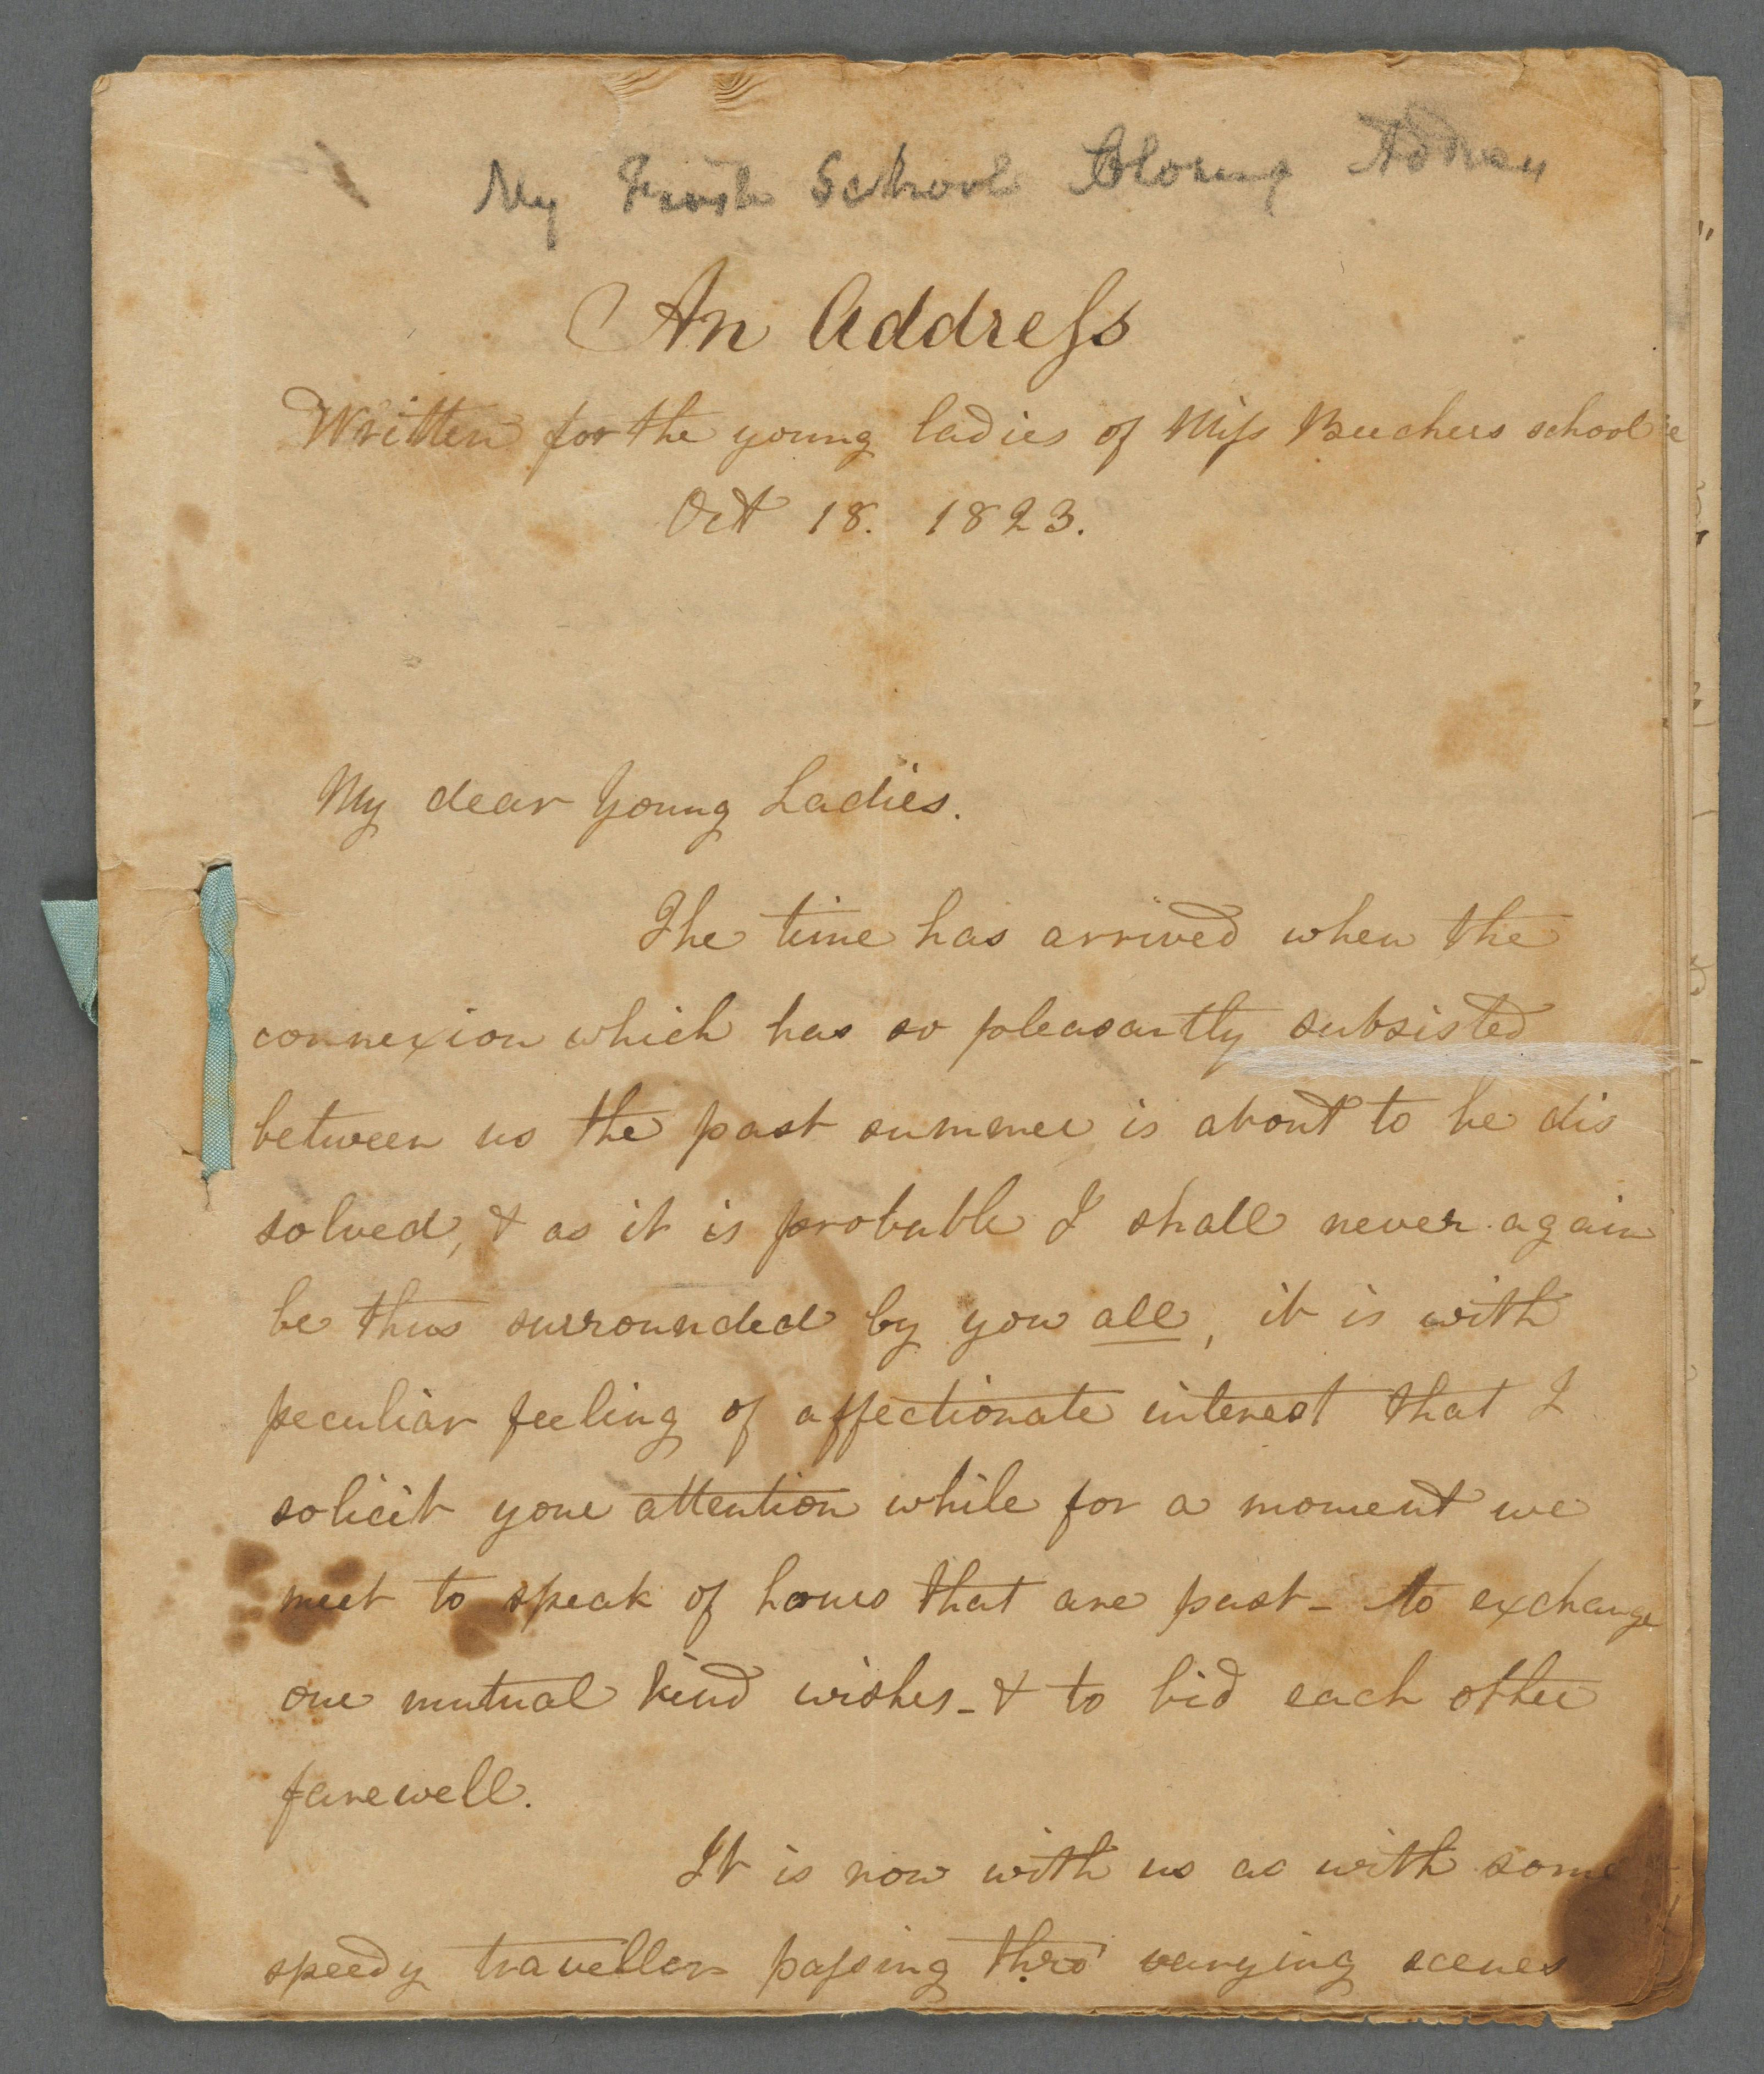 My First School Closing Address
An Address
Written for the young ladies of Miss Beechers school
Oct 18. 1823.
My dear Young Ladies.
The time has arrived when the
connexion which has so pleasantly subsisted
between us the past summer is about to be dis
solved, & as it is probable I shall never again
be thus surrounded by you all, it is with
peculiar feeling of affectionate interest that I
solicit your attention while for a moment we
meet to speak of hours that are past - to exchange
our mutual kind wishes - & to bid each other
farewell.
It is now with us as with some
speedy traveller passing thro' varying scenes